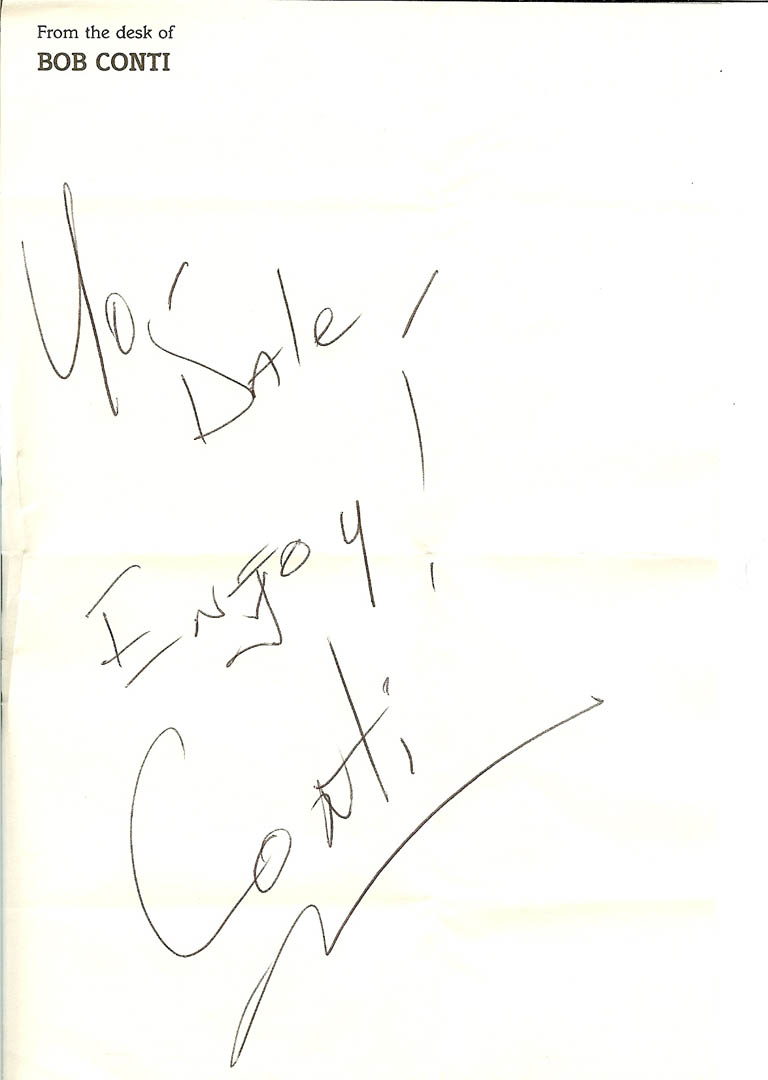 From the desk of
BOB CONTI
Yo, Dale!
Enjoy!
Conti